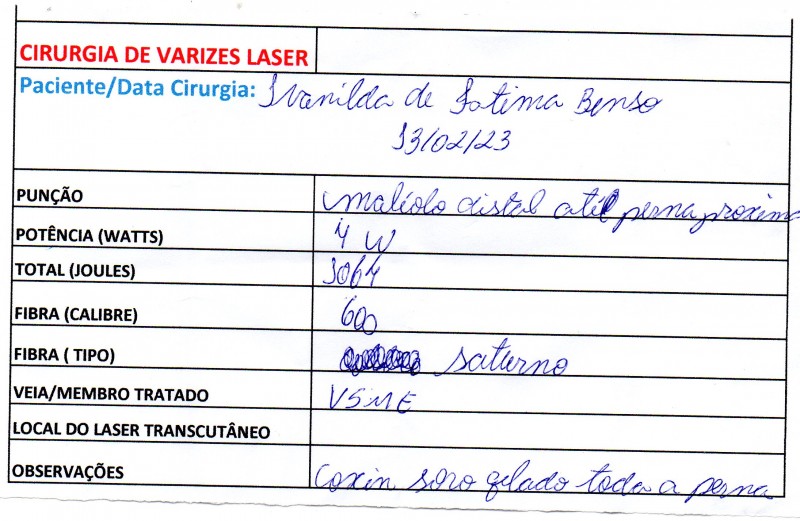 CIRURGIA DE VARIZES LASER
Paciente/Data Cirurgia: Ivanilda de Fatima Benso
13/02/23
PUNÇÃO maléolo distal até perna proxima
POTÊNCIA (WATTS) 4 W
TOTAL (JOULES) 3064
FIBRA (CALIBRE) 600
FIBRA ( TIPO) saturno
VEIA/MEMBRO TRATADO VSME
LOCAL DO LASER TRANSCUTÂNEO
OBSERVAÇÕES Coxin soro gelado toda a perna